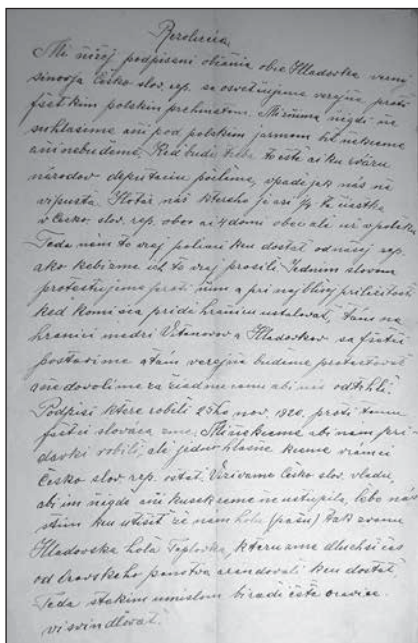 Rezolucia.
Mi nižej podpisaní občania obce Hladovka verni
sinovja Česko slov. rep. sa osvečujeme verejne proti
fšetkim polskim
suhlasime aňi pod polskim jarmom biť ňekceme
aňi nebudeme. Ked bude treba ešte ai ku sväzu
národov deputaciu pošleme, jak nás ňe
vipusťa. Hotár náš ktereho je asi 1/4 ta častka
v Česko. slov. rep. obec ai 4 domi obci ali už v polsku
Teda nám to vraj poliaci ku dostať od našej rep.
ako kebi zme ich to vraj prosili. Jednim slovom
protestujeme proti ňim a pri najbližej priležitosti
ked komisia pride hraňicu ustalovať, tam na
hranici medzi Vitanovov a Hladovkov sa fšetci
postavime a tam verejne budeme protestovať
a ňedovolime za žiadnu cenu abi nás odtrhli.
Podpisi ktere robili 25ho nov. 1920. proti tomu
fšetci slováci zme. Mi ňekceme abi nám pri-
davki robili, ali jednohlasne kceme v ramci
Česko slov. rep. ostať. Vizivame Česko slov. vladu,
abi im ňigde aňi kusek zeme neustupila, lebo nás
stim ku utišiť že nam hola (pašu) tak zvanu
Hladovska hola Teplovka, kteru zme dluhši čas
od Oravskeho panstva arendovali ku dostať.
Teda stakim umislom bi radi ešte oravice
visvindlovať.